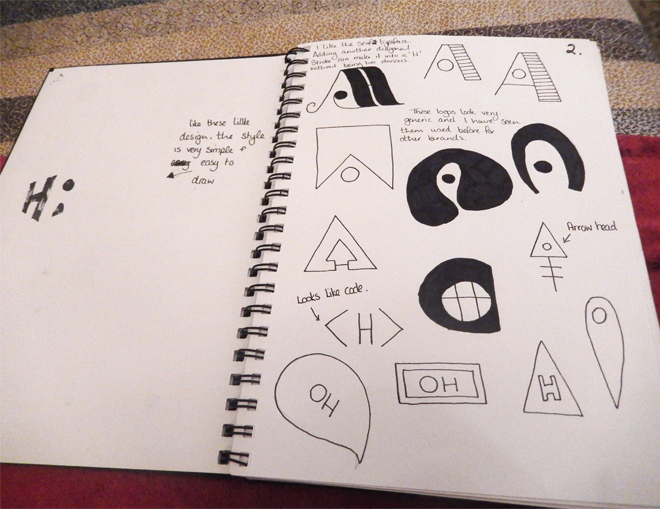 Like these little
design, the style
is very simple +
easy to
draw
H:
2.
I like the serif typeface.
Adding another diagonal
Stroke can make it into a 'H'
without being too obvious.
These logos look very
generic and I have seen
them used before for
other brands.
Arrow head
Looks like code.
<H>
OH
OH
H